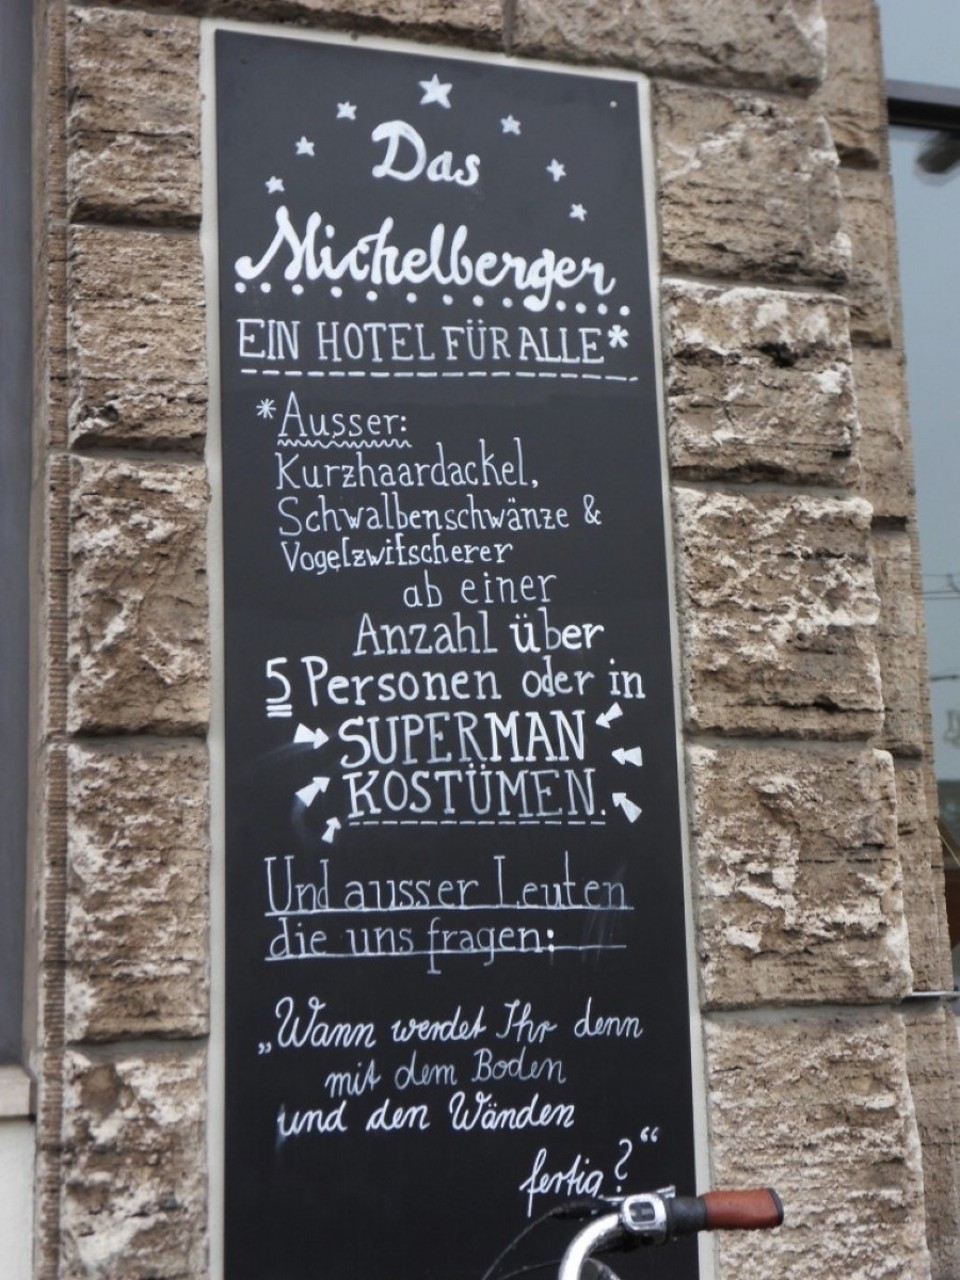 Das
Michelberger
EIN HOTEL FÜR ALLE*
*Ausser:
Kurzhaardackel,
Schwalbenschwänze &
Vogelzwitscherer
ab einer
Anzahl über
5 Personen oder in
SUPERMAN
KOSTÜMEN.
Und ausser Leuten
die uns fragen:
„Wann werdet Ihr denn
mit dem Boden
und den Wänden
fertig?“